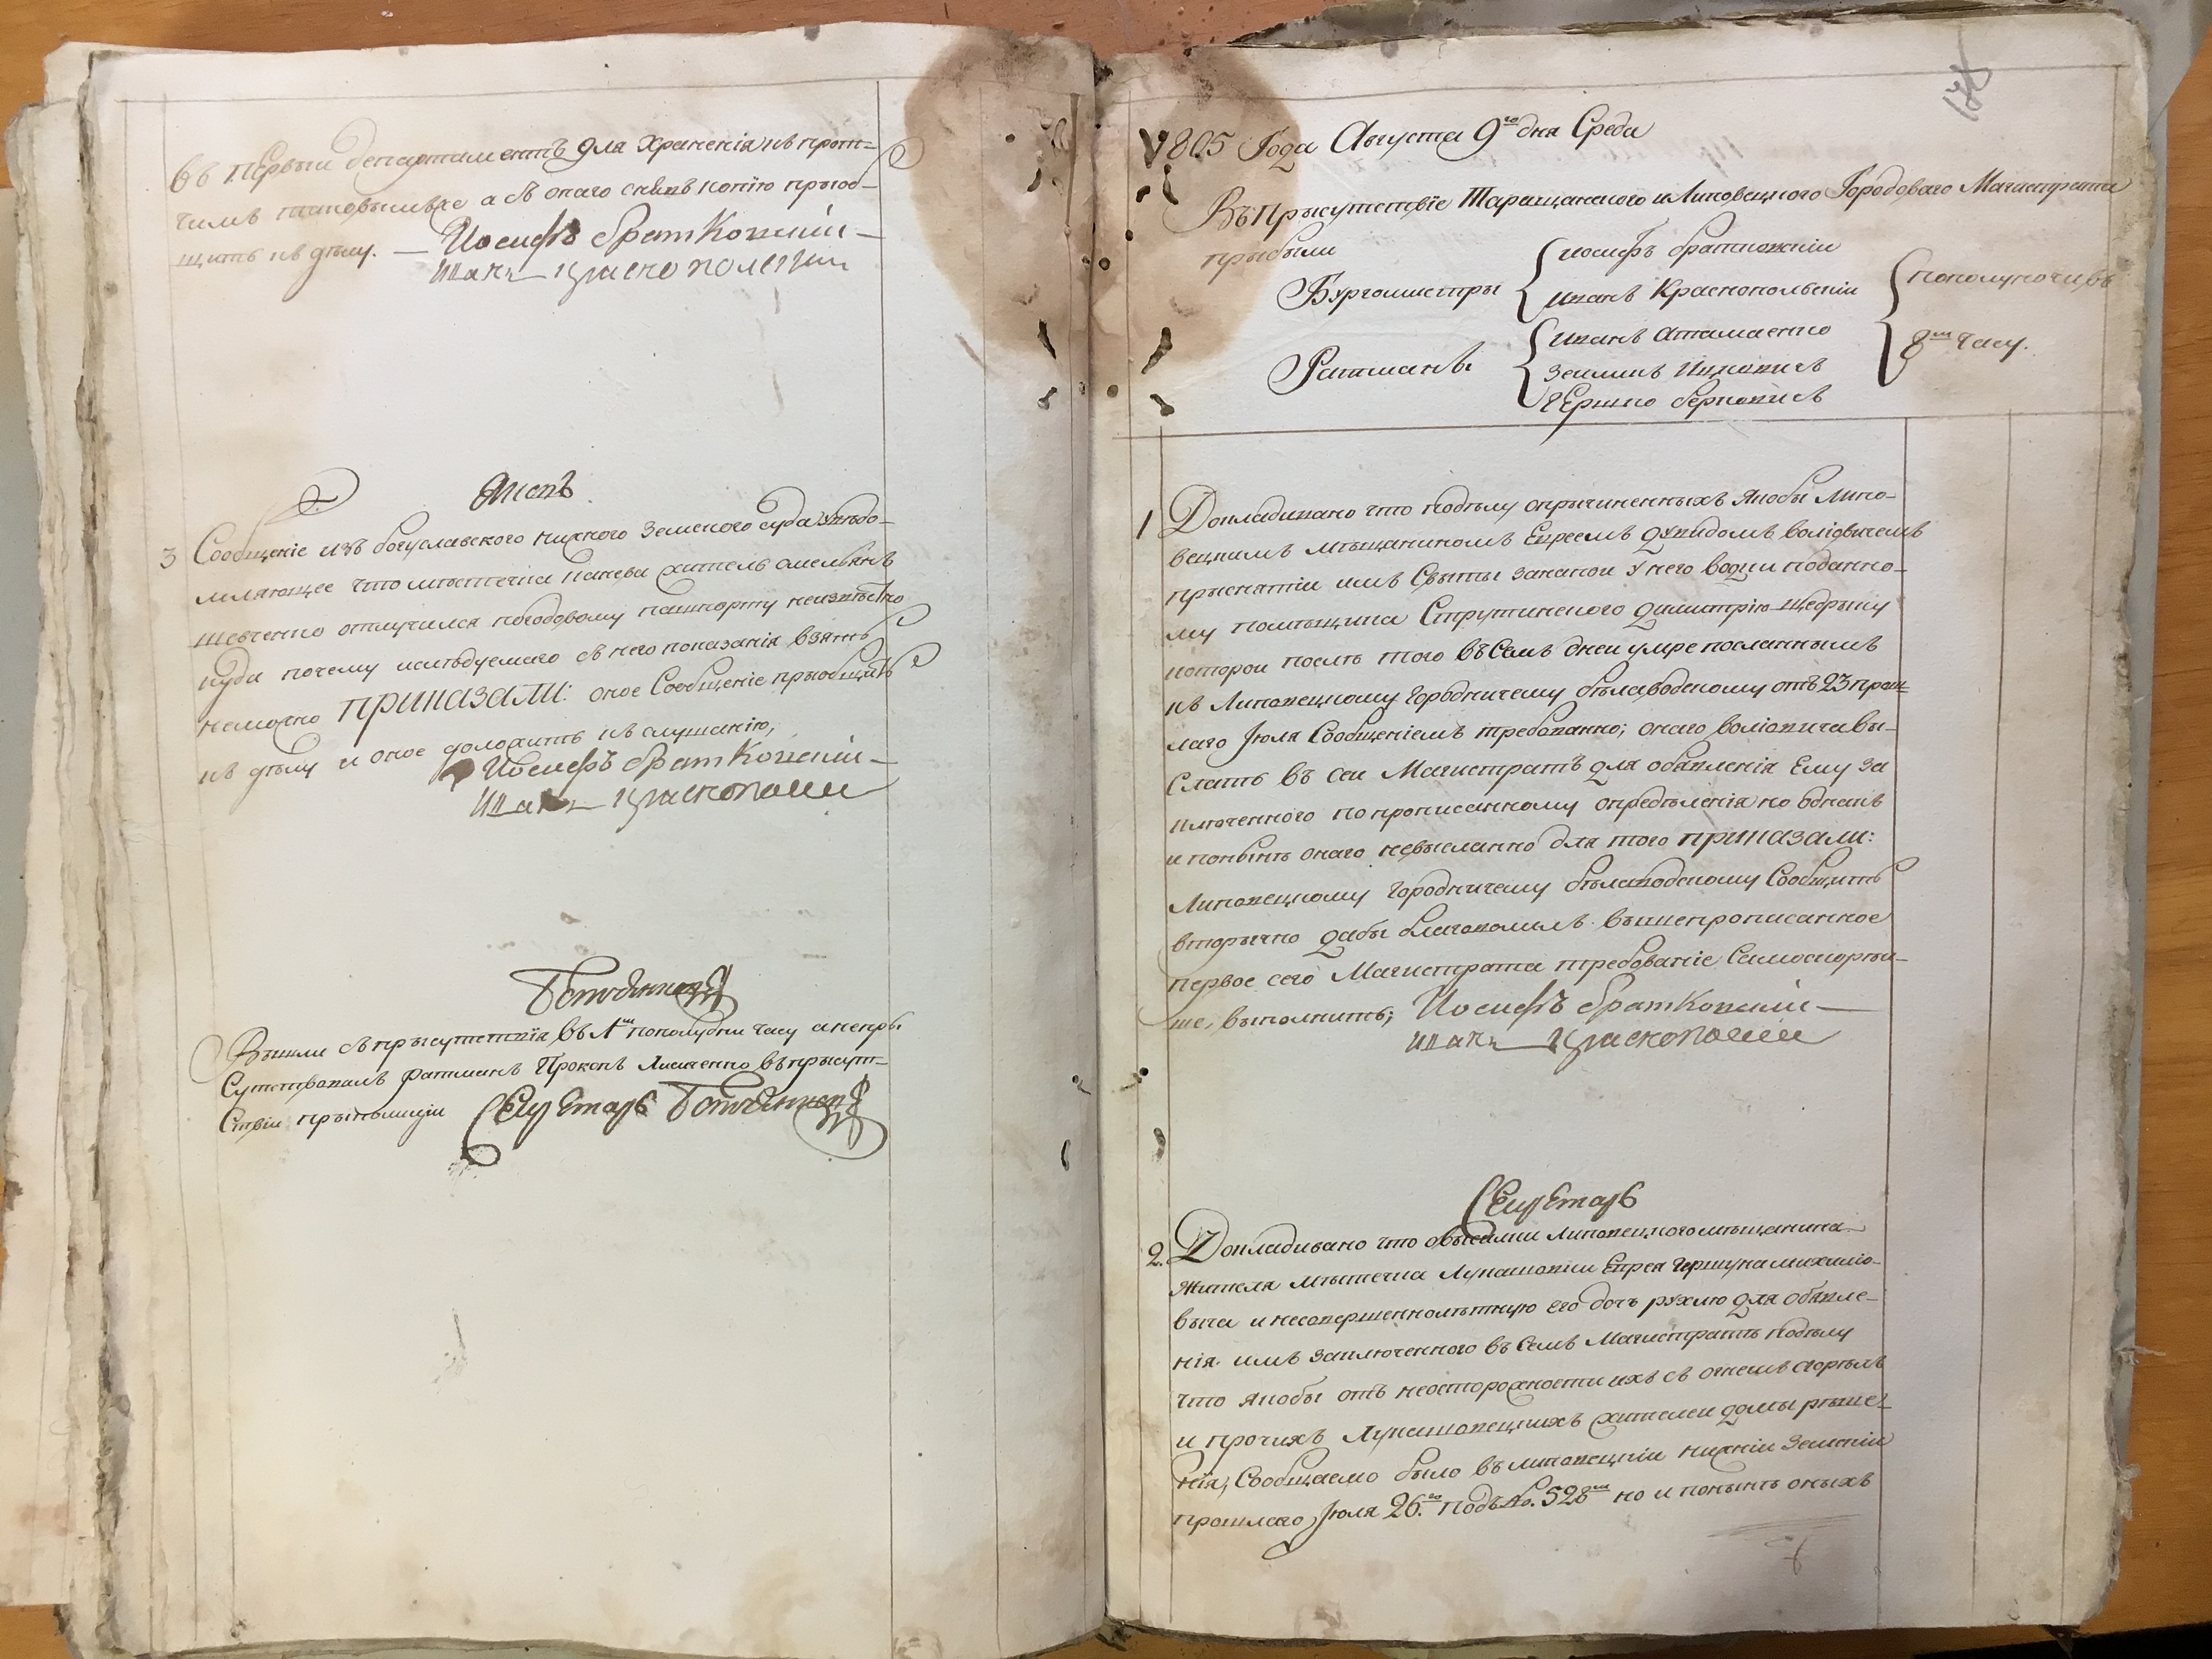 въ первый департаментъ для храненія въ проч-
чимъ таковымъже а съ онаго снявъ копію пріоб-
щить къ дѣлу. — Иосифъ братковскій —
иванъ краснополскии
Слушанъ
3 Сообщеніе изъ богуславского нижнего Земского суда увѣдо-
мляющее что мѣстечка канева житель омельянъ
шевченко отлучился погодовому пашпорту неизвѣстно
куда почему изслѣдуемаго съ него показанія взять
неможно приказали: оное Сообщеніе пріобщить
къ дѣлу и оное доложить къ слушанію,
Иосифъ братковскій —
иванъ краснополски
Вышли съ прысутствія въ 1м пополудни часу а непры-
Сутствовалъ ратманъ Прокопъ Лисченко въ прысут-
Ствіи Секретарь
178
1805 Года Августа 9го дня Среда
Въ Прысутствіе Таращанского и Липовецкого Городоваго Магистрата
прыбыли
Бургомистры
иосифъ братковскій
иванъ Краснопольскій
Ратманы
иванъ Атаманенко
зельманъ Ицковичъ
гершко берковичъ
пополуночи въ
8м часу.
1 Докладывано что по дѣлу опрычиненныхъ якобы Липо-
вецкимъ мѣщаниномъ Евреемъ Дувидомъ Воліовичемъ
прыснятіи имъ Свыты законои у него водки поданно-
му помѣщика Струтинского Димитрію Щедрыку
которои послѣ того въ Семъ дней умре посланнымъ
къ Липовецкому Городничему бѣлаводскому отъ 23 прош-
лаго Іюля Сообщеніемъ требованно; онаго воліовича вы-
слать въ сей Магистратъ для объявленія Ему за
ключенного по прописанному опредѣленія но однакъ
и понынѣ онаго невысланно для того приказали:
Липовецкому Городничему бѣлаводскому Сообщить
вторычно дабы благоволилъ вышепрописанное
первое сего Магистрата требованіе Самоскорѣй-
ше, выполнить; Иосифъ братковскій —
иванъ краснополски
Секретарь
2. Докладывано что о высылки Липовецкого мѣщанина
Жителя мѣстечка Лукашовки Еврея Гершуна михило-
выча и несовершеннолѣтную его дочь рухлю для объявле-
нія имъ заключенного въ Семъ Магистратѣ по дѣлу
что якобы отъ неосторожности ихъ съ огнемъ сгорѣлъ
и прочихъ Лукашовецкихъ жителей домы рѣше-
нія, Сообщаемо было въ липовецкій нижній Земскій
прошлаго Іюля 26го подъ No. 528м но и понынѣ оныхъ